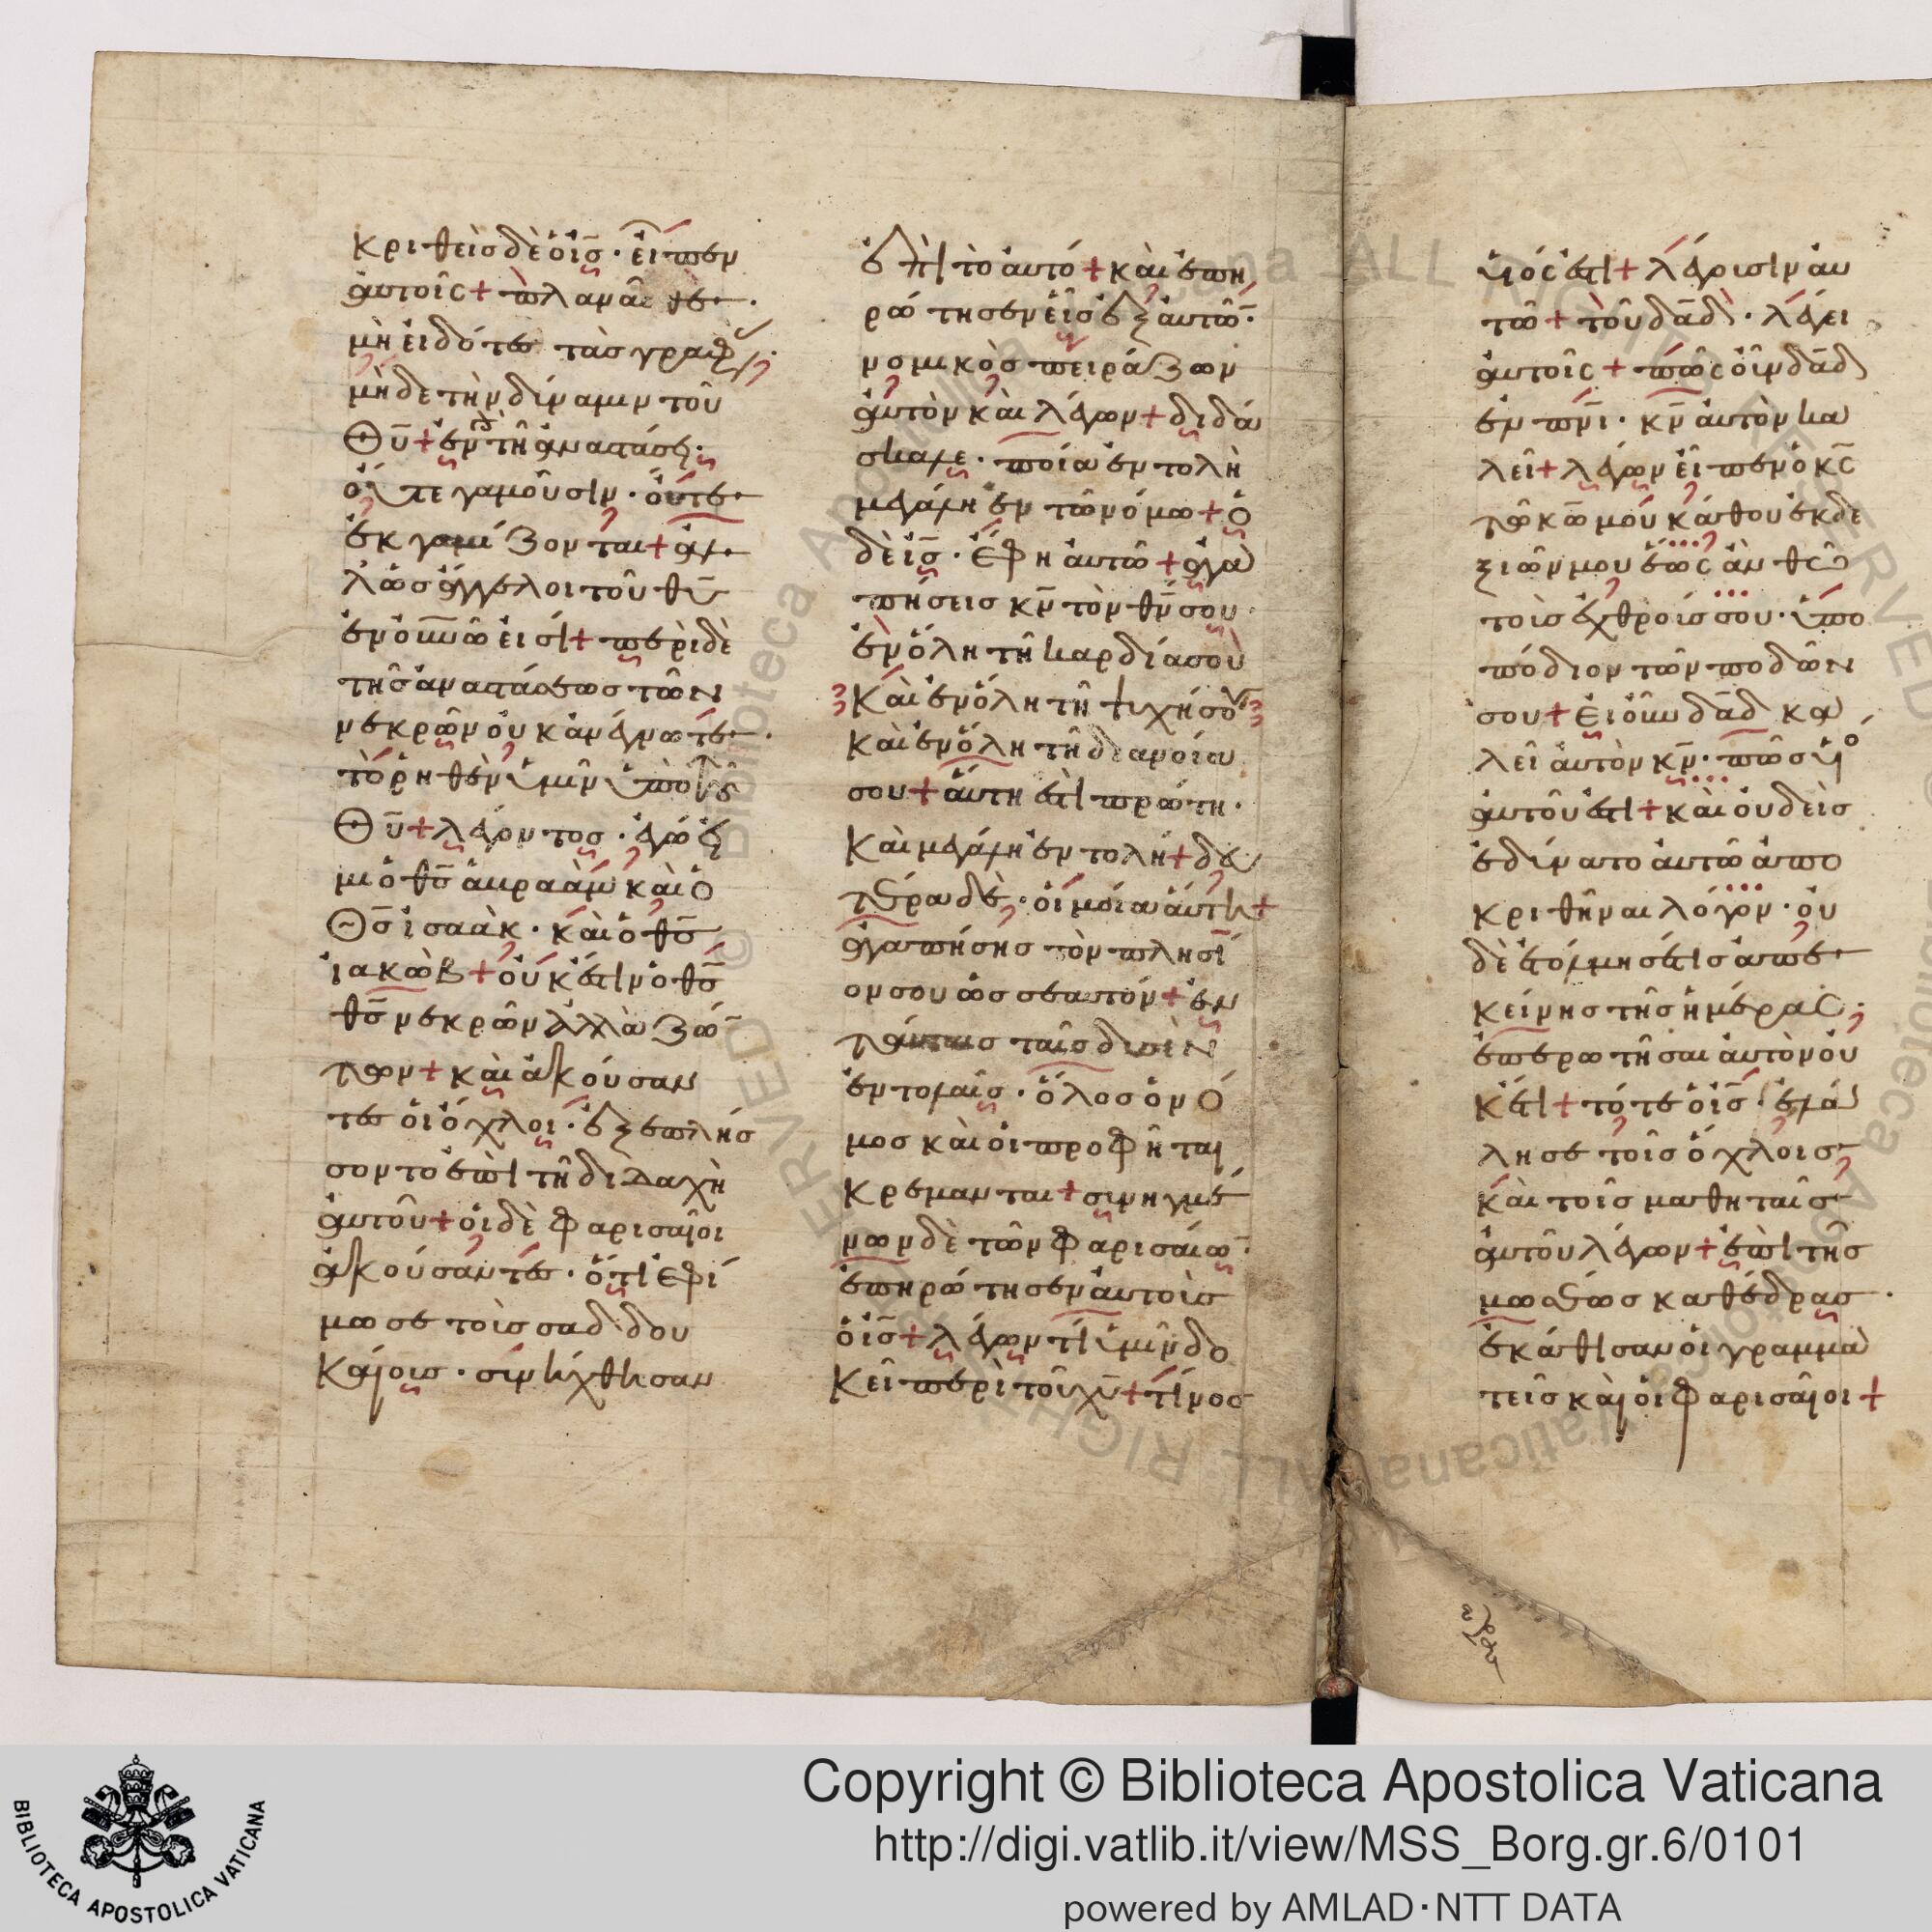 κριθεὶς δὲ ὁ ἰς̅ · εἶπεν
αὐτοῖς + πλανᾶσθε ·
μὴ εἰδότες τὰς γραφ
μὴδε τὴν δύναμιν τοῦ
θυ̅ + ἐν τῆ ἀναστάσει
οὔτε γαμοῦσιν · οὔτε
ἐκγαμίζονται + ἀλ
λὡς ἄγγελοι τοῦ θυ̅
ἐν οὐνῶ εἰσὶ + περὶ δὲ
τῆς ἀναστάσεως τῶν
νεκρῶν οὐκ ἀνέγνωτε ·
τὸ ῥηθὲν ὑμῖν ὑπὸ τοῦ
θυ̅ + λέγοντος · ἐγώ εἰ
μι ὁ θς̅ ἀβραὰμ καὶ ὁ
θς̅ ἰσαὰκ · καὶ ὁ θς̅
ἰακὼβ + οὐκ ἔστιν ὁ θς̅
θς̅ νεκρῶν ἀλλὰ ζώ
των + καὶ ἀκούσαν
τες οἱ ὄχλοι · ἐξεπλήσ
σοντο ἐπὶ τῆ διδαχὴ
αὐτοῦ + οἱ δὲ φαρισαῖοι
ἀκούσαντες · ὅτι ἐφί
μωσε τοὶς σαδδου
καίοις · συνήχθησαν
ἐπὶ τὸ αὐτό + καὶ ἐπη
ρώτησεν εἷς ἐξ αὐτῶ̅ ·
νομικὸς πειράζων
αὐτὸν καὶ λέγων + διδά
σκαλε · ποία ἐντολὴ
μεγάλη ἐν τῶ νόμω + ὁ
δὲ ἰς̅ · ἔφη αὐτῶ + ἀγα
πήσεις κν̅ τὸν θν̅ σου
ἐν ὅλη τῆ καρδία σοὺ
καὶ ἐν ὅλη τῆ ψυχή σου
καὶ ἐν ὅλη τῆ διανοία
σου + αὕτη ἐστὶ πρώτη ·
καὶ μεγάλη ἐντολή + δευ
τέρα δὲ · ὁμοία αὐτῆ +
ἀγαπήσης τὸν πλησί
ον σου ὡς σεαυτόν + ἐν
ταύταις ταῖς δυσὶν
ἐντολαῖς · ὅλος ὁ νό
μος καὶ οἱ προφῆται
κρέμανται + συνηγμέ
νων δὲ τῶν φαρισαίω̅ ·
ἐπηρώτησεν αὐτοὶς
ὁ ἰς̅ + λέγων τί ὑμῖν δο
κεῖ περὶ τοῦ χυ̅ + τίνος
υἱός ἐστι + λέγουσιν αὐ
τῶ + τοῦ δα̅δ · λέγει
αὐτοῖς + πῶς οὖν δα̅δ
ἐν πνι̅ · κν̅ αὐτὸν κα
λεῖ + λέγων εἶπεν ὁ κς̅
τῶ κω̅ μού κάθου ἐκ δε
ξιῶν μου ἕως ἂν θῶ
τοὶς ἐχθροίς σου · ὑπο
πόδιον τῶν ποδῶν
σου + εἰ οὖν δα̅δ κα
λεῖ αὐτὸν κν̅ · πῶς υἱὸ
αὐτοῦ ἐστι + καὶ οὐδεὶς
ἐδύνατο αὐτῶ ἀπο
κριθῆναι λόγον · οὐ
δὲ ἐτόλμησέ τις ἀπ ἐ
κείνης τῆς ἡμέρας
ἐπερωτῆσαι αὐτὸν οὐ
κέτι + τότε ὁ ἰς̅ · ἐλά
λησε τοῖς ὄχλοις
καὶ τοῖς μαθηταῖς
αὐτοῦ λέγων + ἐπὶ τῆς
μωσέως καθέδρας ·
ἐκάθισαν οἱ γραμμα
τεῖς καὶ οἱ φαρισαῖοι +
Copyright © Biblioteca Apostolica Vaticana
http://digi.vatlib.it/view/MSS_Borg.gr.6/0101
powered by AMLAD·NTT DATA
BIBLIOTECA APOSTOLICA VATICANA